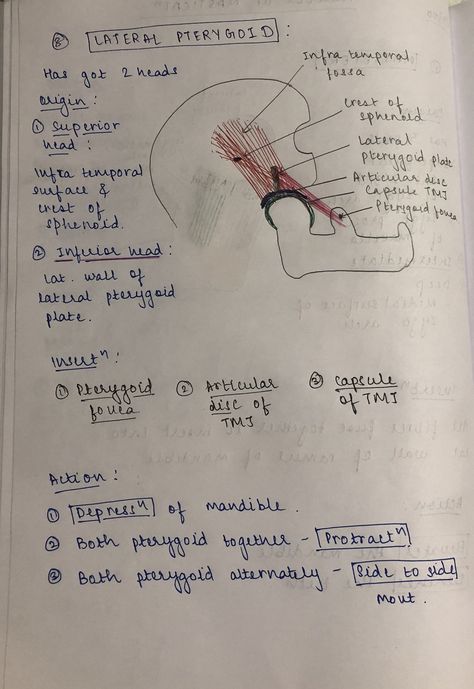 ③ LATERAL PTERYGOID :
Has got 2 heads
Origin :
① Superior
head :
Infra temporal
surface &
crest of
sphenoid.
② Inferior head :
Lat. wall of
lateral pterygoid
plate.
Infra temporal
fossa
Crest of
sphenoid
Lateral
pterygoid plate
Articular disc
Capsule TMJ
Pterygoid fovea
Insertⁿ :
① Pterygoid
fovea
② Articular
disc of
TMJ
③ Capsule
of TMJ
Action :
① Depressⁿ of mandible.
② Both pterygoid together - Protractⁿ
③ Both pterygoid alternately - Side to side
mout.